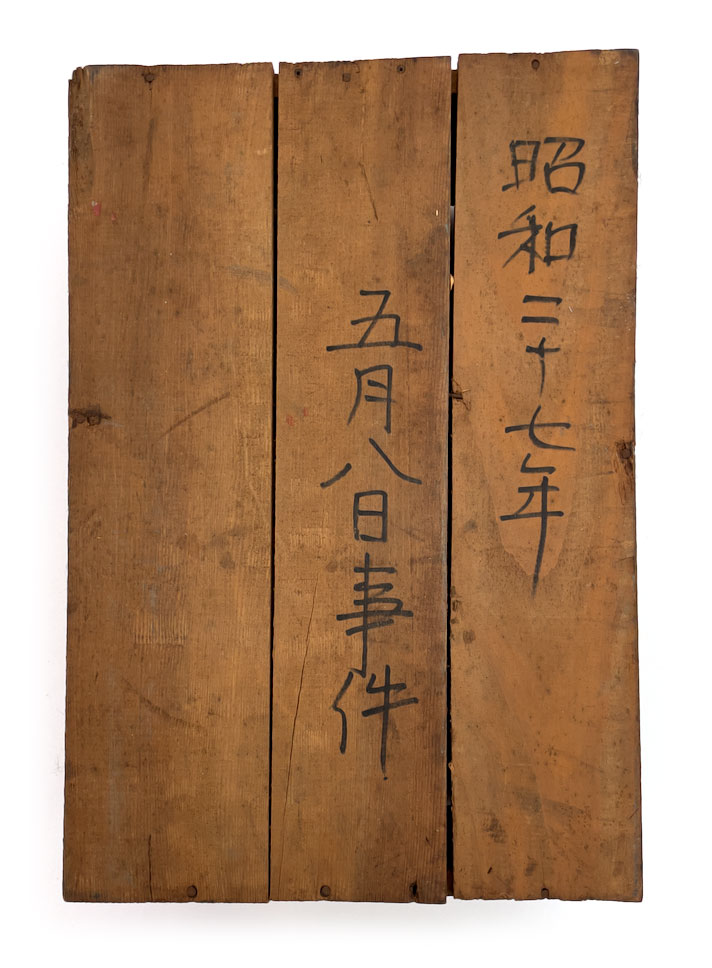 昭和二十七年
五月八日事件